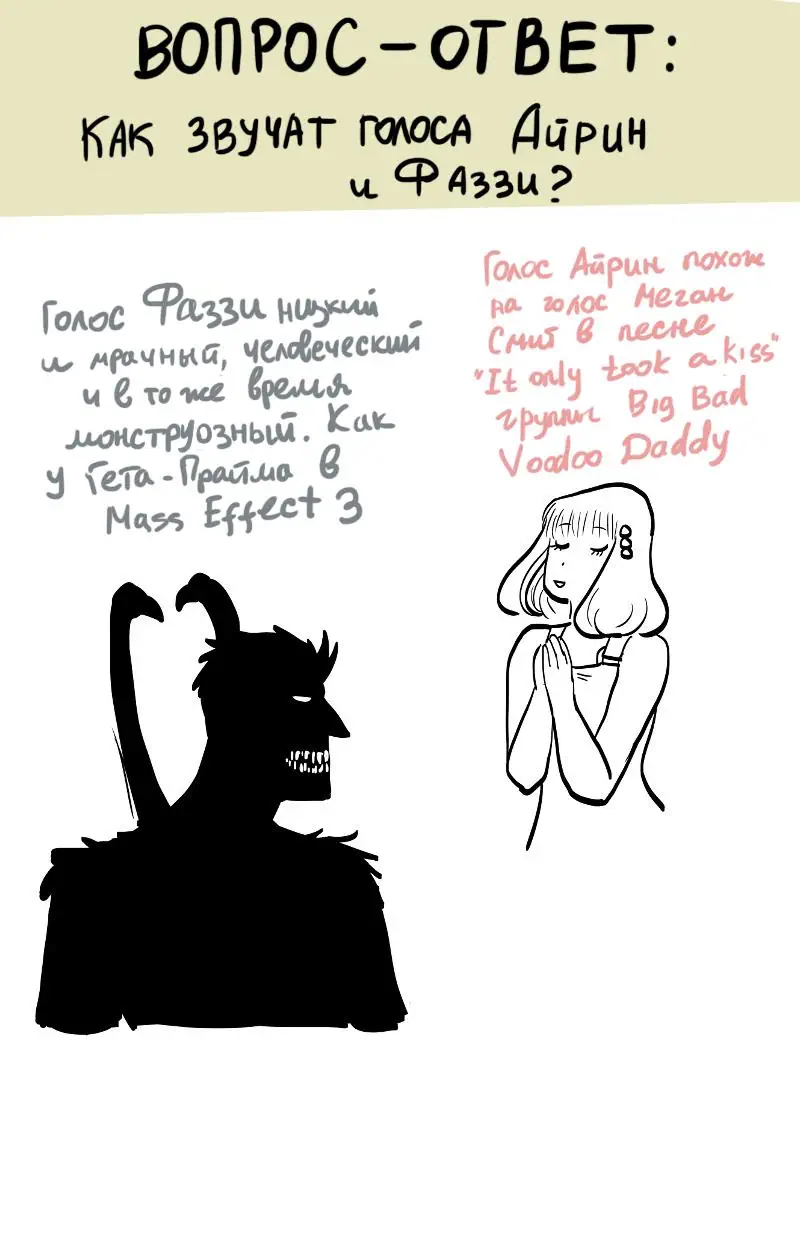 ВОПРОС-ОТВЕТ:
КАК ЗВУЧАТ ГОЛОСА АЙРИН
и ФАЗЗИ?
Голос Фаззи низкий
и мрачный, человеческий
и в то же время
монструозный. Как
у Гета-Прайма в
Mass Effect 3
Голос Айрин похож
на голос Меган
Смит в песне
"It only took a kiss"
группы Big Bad
Voodoo Daddy